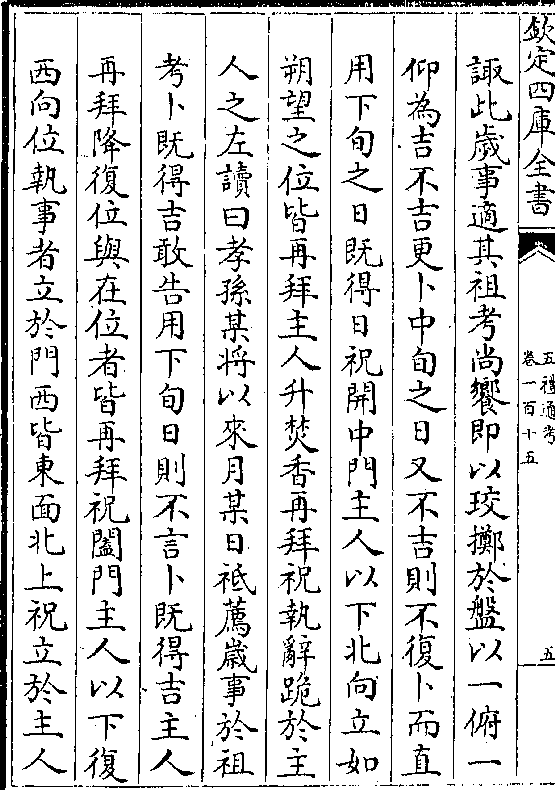 欽定四庫全書
五禮通考
卷一百十五
五
諏此歲事適其祖考尚饗即以珓擲於盤以一俯一
仰為吉不吉更卜中旬之日又不吉則不復卜而直
用下旬之日既得日祝開中門主人以下北向立如
朔望之位皆再拜主人升焚香再拜祝執辭跪於主
人之左讀曰孝孫某將以來月某日祗薦歲事於祖
考卜既得吉敢告用下旬日則不言卜既得吉主人
再拜降復位與在位者皆再拜祝闔門主人以下復
西向位執事者立於門西皆東面北上祝立於主人